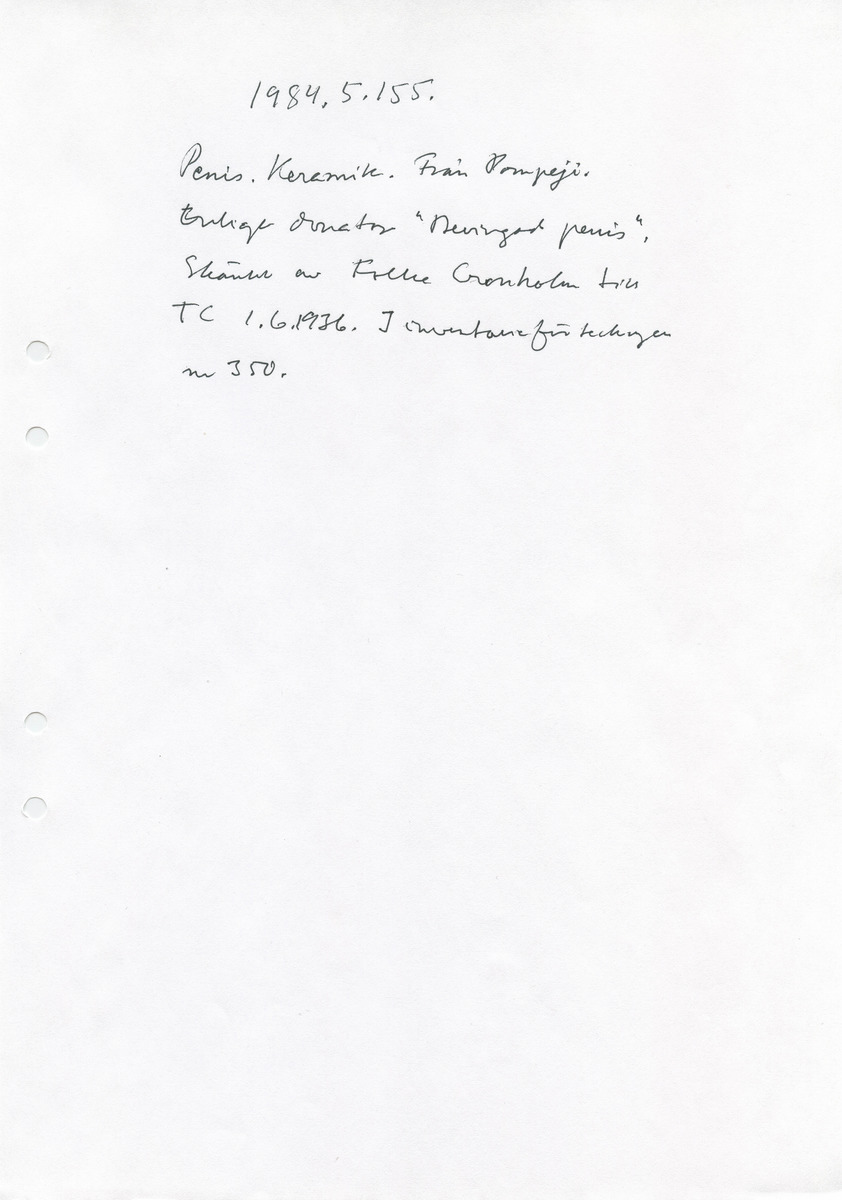 1984.5.155.
Penis. Keramik. Från Pompeji.
Enligt donator "Bevingad penis".
Skänkt av Folke Cronholm till
TC 1.6.1936. I inventarieförteckningen
nr 350.